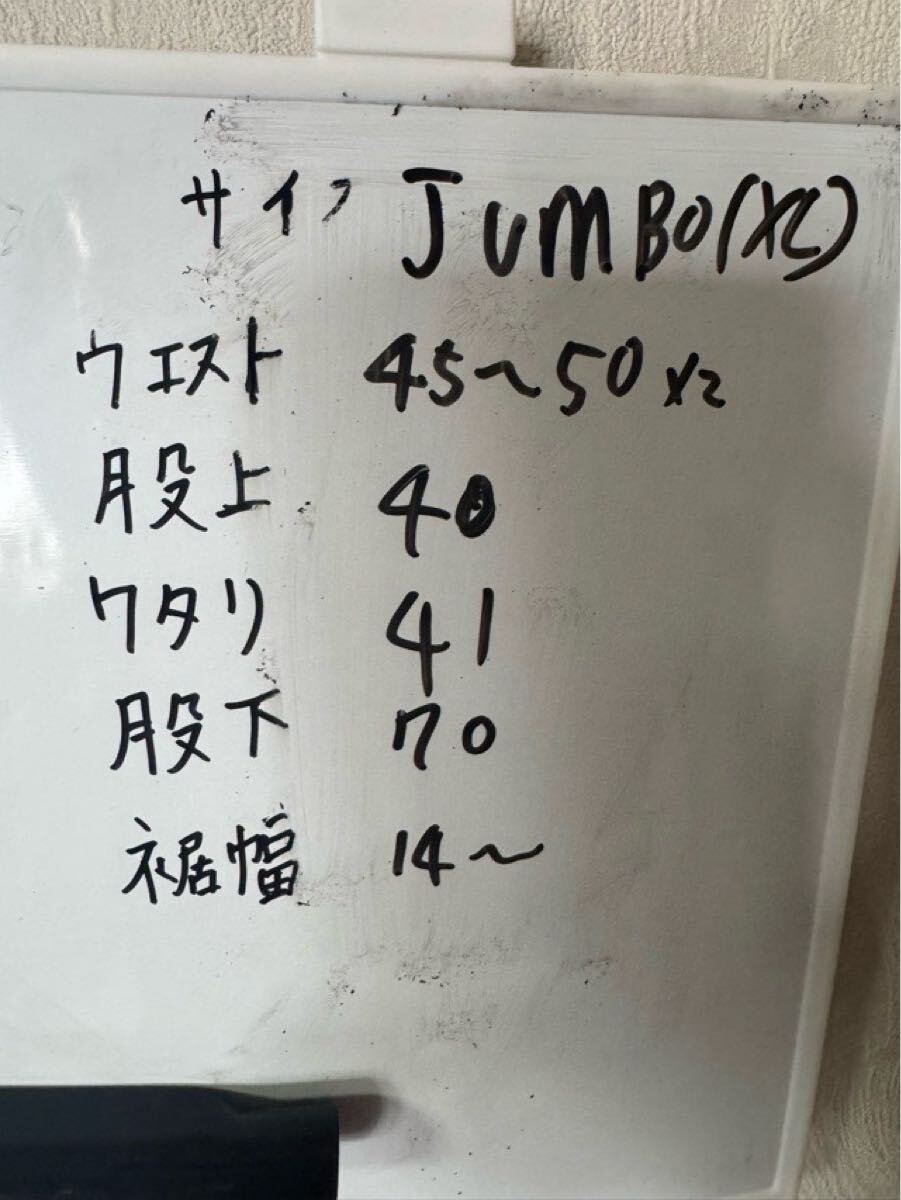 サイズ JUMBO(XL)
ウエスト 45～50x2
股上 40
ワタリ 41
股下 70
裾幅 14～